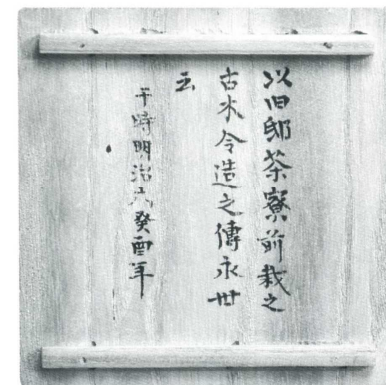 以旧邸茶寮前栽之
古木令造之傳永世
云
于時明治六癸酉年